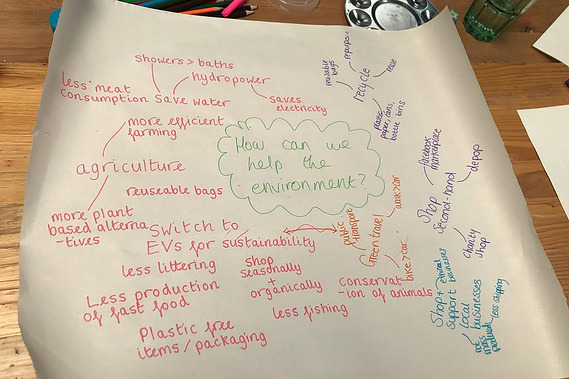 showers > baths
hydropower
less meat
consumption
save water
saves
electricity
more efficient
farming
agriculture
reuseable bags
more plant
based alterna
-tives
How can we
help the
environment?
Switch to
EVs for sustainability
less littering
Less production
of fast food
Plastic free
items/packaging
shop
seasonally
+
organically
less fishing
conservat
-ion of animals
public
transport
Green travel
walk > car
bike > car
reusable
bags
repurpose
recycle
paper, cans,
bottle bins
facebook
marketplace
depop
Shop
second-hand
charity
shop
Shop +
support
local
businesses
less shipping